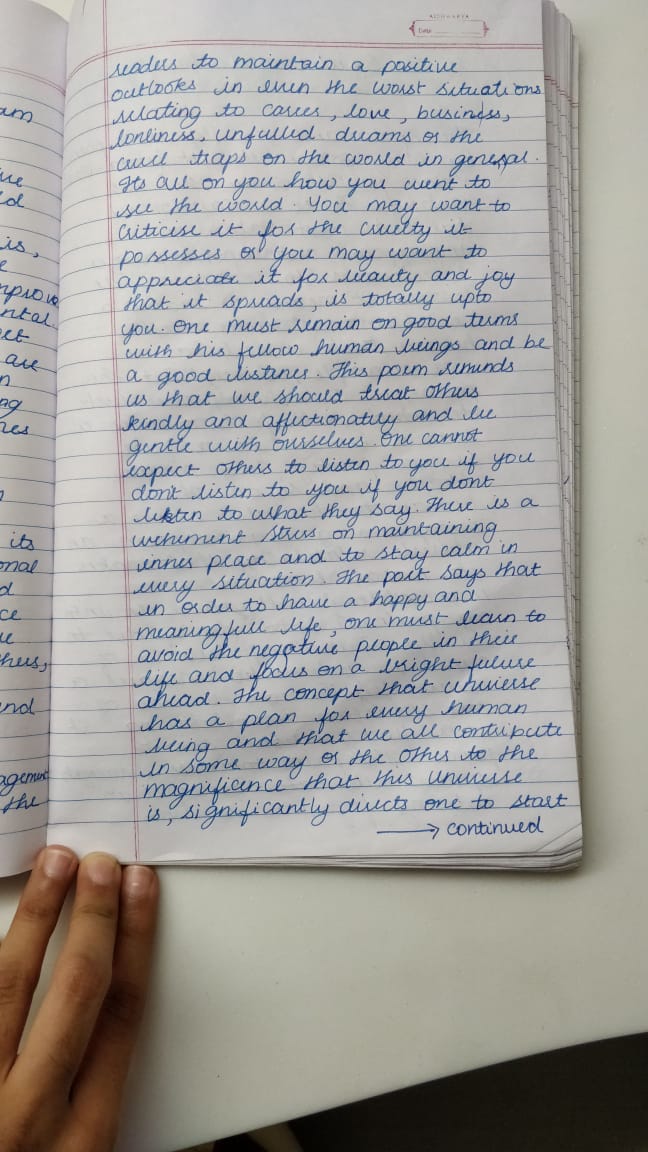 AISHWARYA
Date
readers to maintain a positive
outlooks in even the worst situations
relating to career, love, business,
lonliness, unfulled dreams or the
cruel traps on the world in general.
Its all on you how you went to
see the world. You may want to
criticise it for the cruelty it
possesses or you may want to
appreciate it for beauty and joy
that it spreads, is totally upto
you. One must remain on good terms
with his fellow human beings and be
a good listener. This poem reminds
us that we should treat others
kindly and affectionately and be
gentle with ourselves. One cannot
expect others to listen to you if you
don't listen to you if you dont
listen to what they say. There is a
vehement stress on maintaining
inner peace and to stay calm in
every situation. The poet says that
in order to have a happy and
meaningfull life, one must learn to
avoid the negative people in their
life and focus on a bright future
ahead. The concept that universe
has a plan for every human
being and that we all contribute
in some way or the other to the
magnificence that this universe
is, significantly directs one to start
→ continued
am
is,
are
its
ce
hers,
agement
the